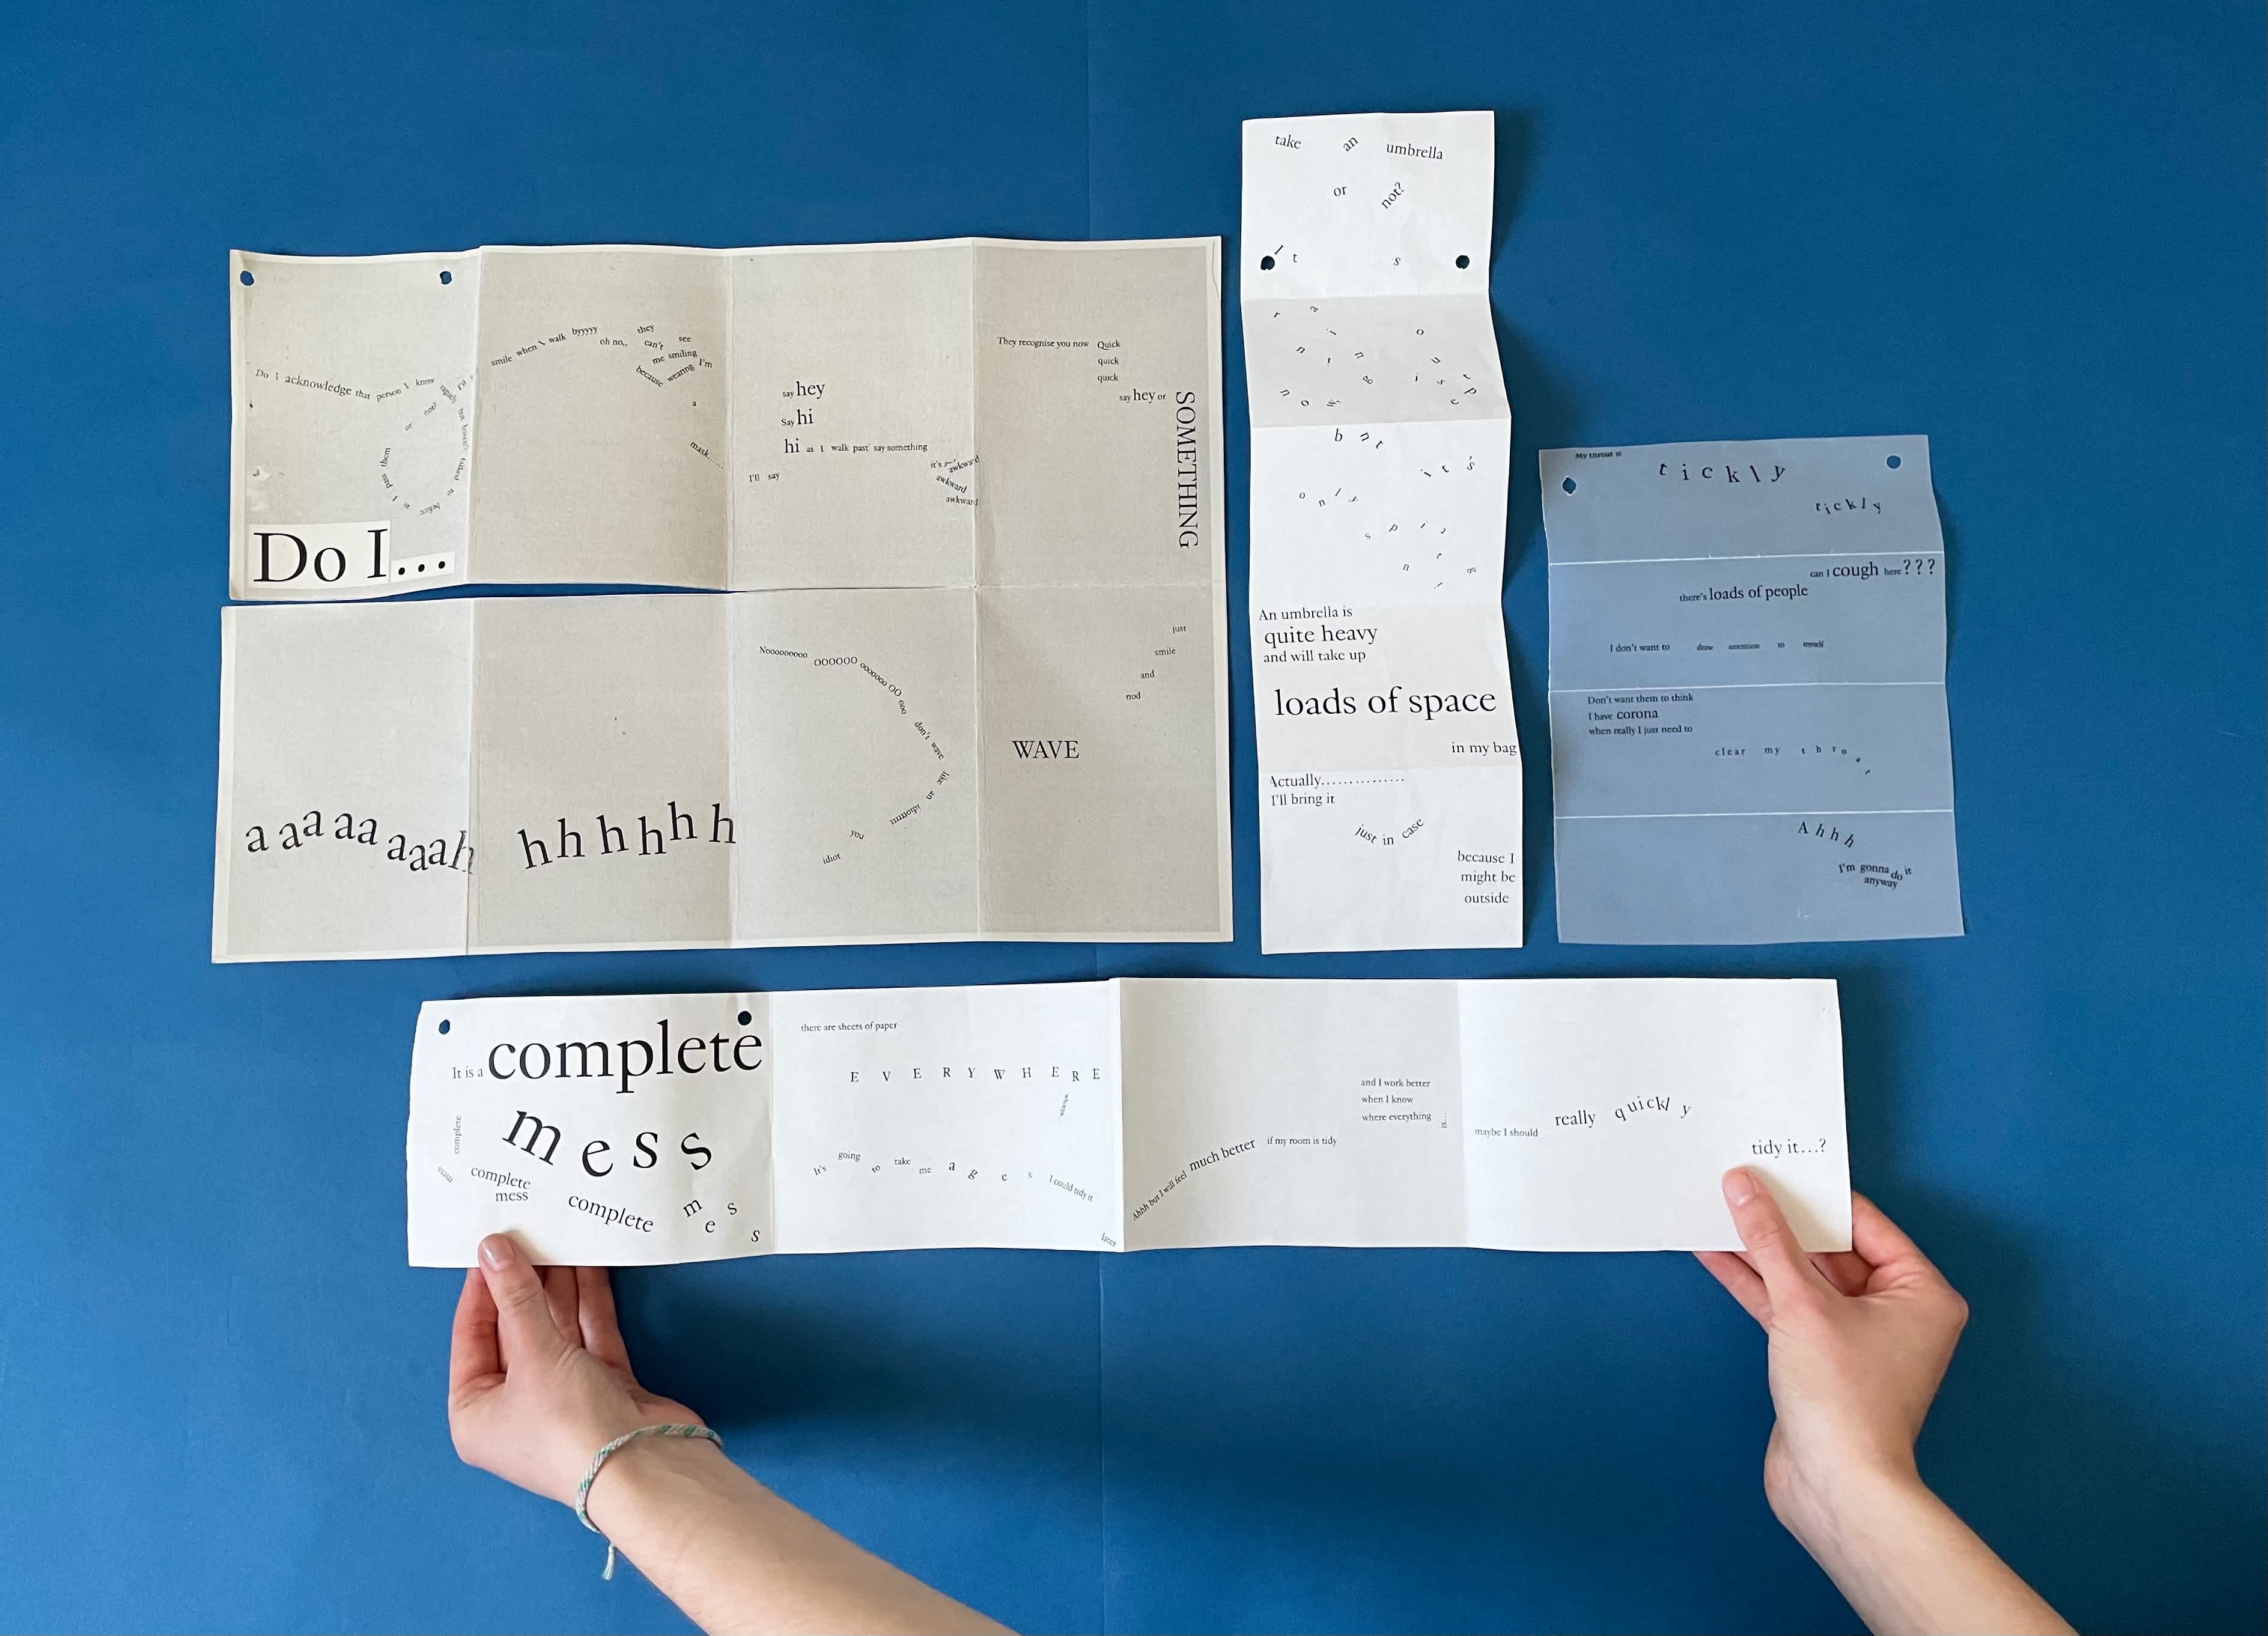 Do I acknowledge that person I know
or not?
as I pass them
Do I...
smile when I walk byyyyy
oh no,, they can't see
me smiling
because wearing I'm
a
mask......
say hey
Say hi
hi as I walk past say something
I'll say
it's
awkward
awkward
awkward
They recognise you now Quick
quick
quick
say hey or
SOMETHING
a aa aa aaah
hh hhh h
Nooooooooo oooooo oooooooo OO ooo
don't wave like an idiotttttt
you
idiot
just
smile
and
nod
WAVE
take an umbrella
or not?
It s
raining
now
outside
but
it's
only
spitting
An umbrella is
quite heavy
and will take up
loads of space
in my bag
Actually...............
I'll bring it
just in case
because I
might be
outside
My throat is
tickly
tickly
can I cough here???
there's loads of people
I don't want to draw attention to myself
Don't want them to think
I have corona
when really I just need to
clear my throat
Ahhh
I'm gonna do it
anyway
It is a complete
mess
complete
mess
complete
mess
complete mess
there are sheets of paper
EVERYWHERE
It's going to take me ages I could tidy it
later
Ahhh but I will feel much better if my room is tidy
and I work better
when I know
where everything
is
maybe I should really quickly
tidy it...?